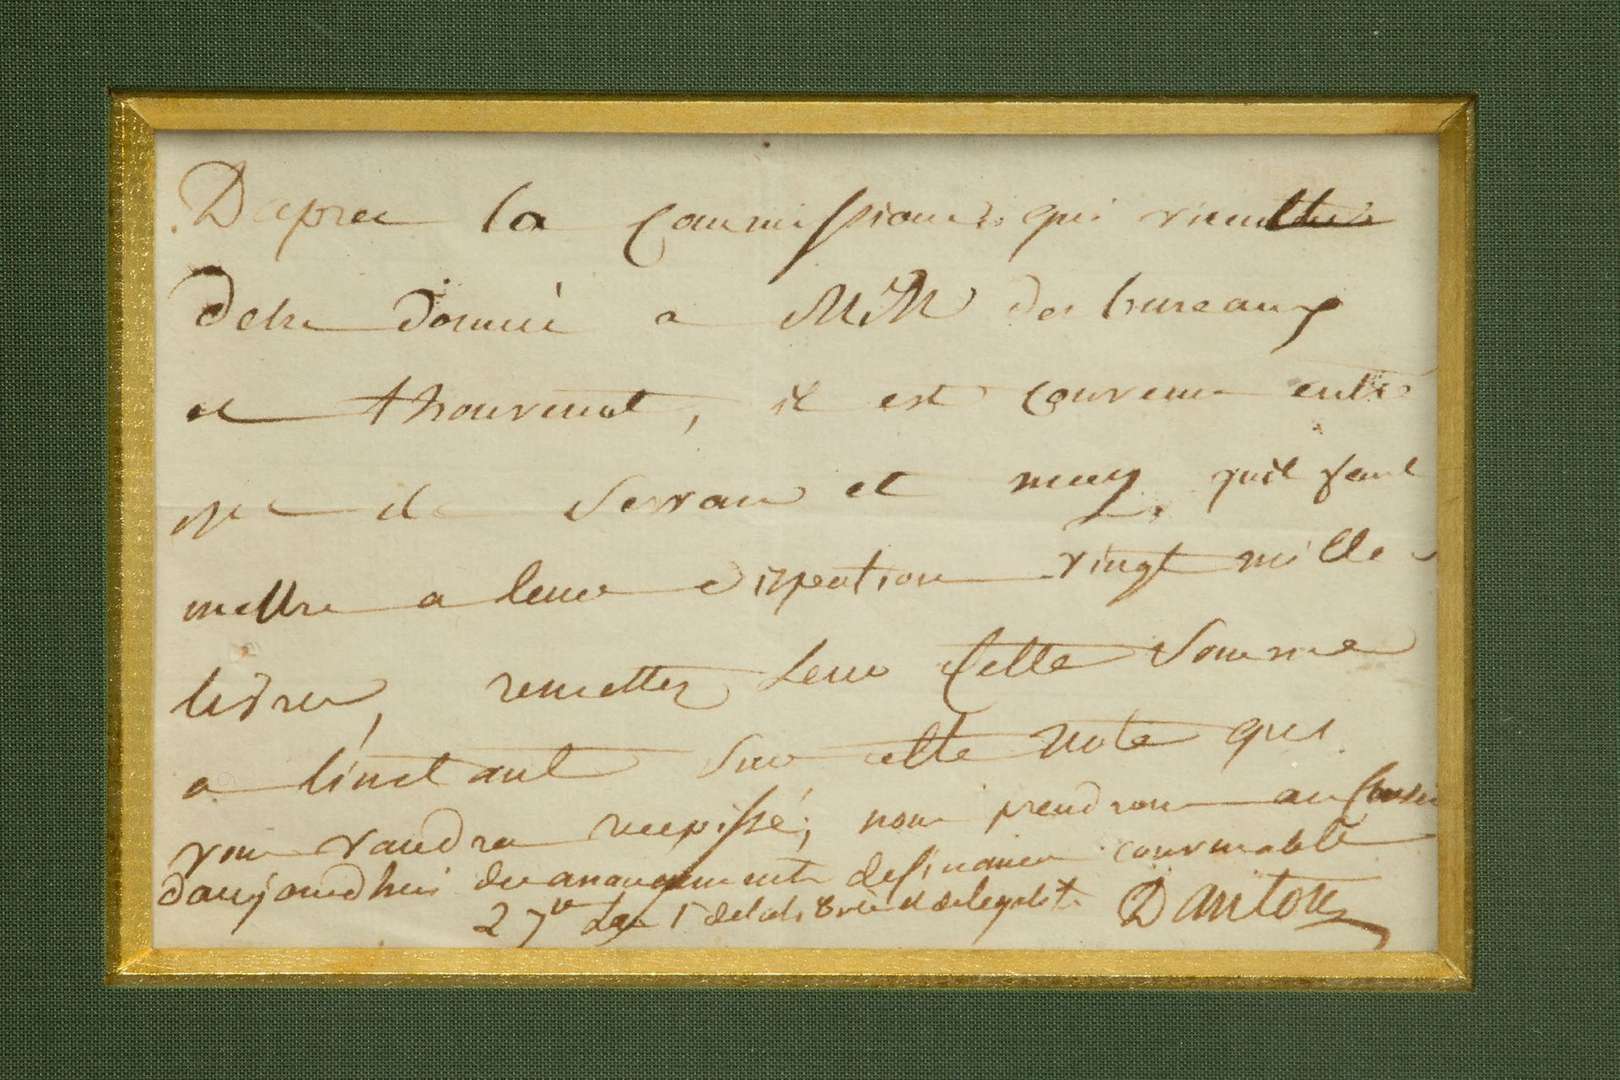 Daprec la Commission qui vient
detre donnée a MrM desbureaux
et thouvenot, il est convenu entre
mr de Servan et moy, quil faut
mettre a leur disposition vingt mille
livres, remettez leur Cette Somme
a linstant Sur cette note qui
vous vaudra recepissé; nous prendrons au Conseil
daujourdhuy des arrangements definance convenable
27bre Lan 1 delaliberté et delegalité Danton